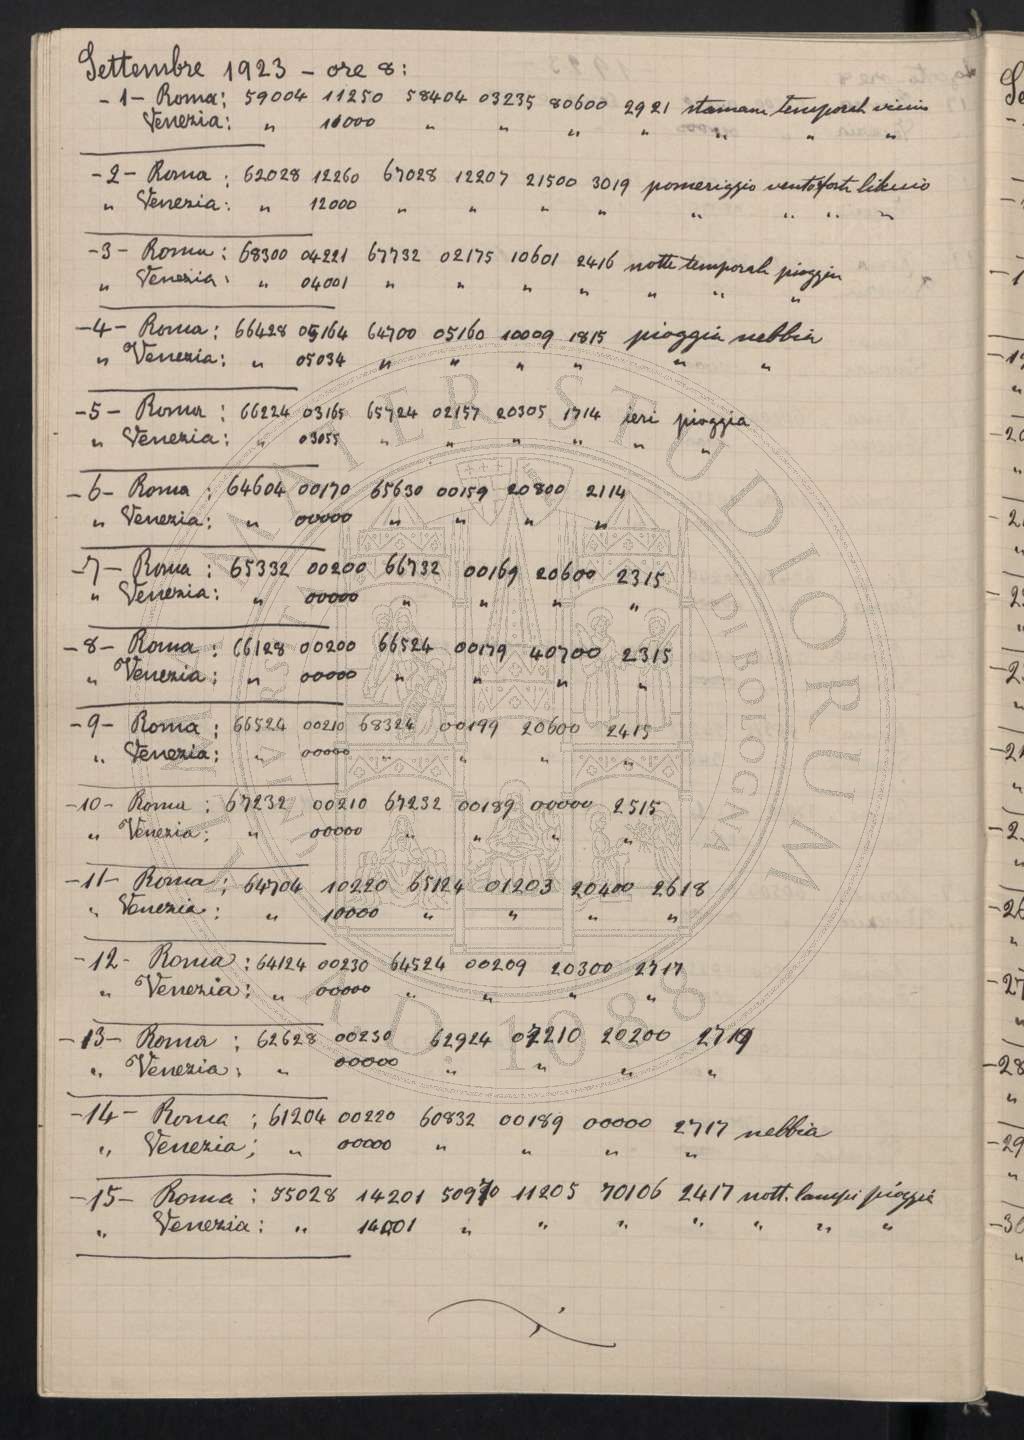 Settembre 1923 - ore 8:
-1- Roma: 59004 11250 58404 03235 80600 2921 stamani temporali vicini
Venezia: " 10000 " " " " " " "
-2- Roma: 62028 12260 67028 12207 21500 3019 pomeriggio vento forte libeccio
" Venezia: " 12000 " " " " " " " "
-3- Roma: 68300 04221 67732 02175 10601 2416 notte temporale pioggia
" Venezia: " 04001 " " " " " " "
-4- Roma: 66428 05164 64700 05160 10009 1815 pioggia nebbia
" Venezia: " 05034 " " " " " "
-5- Roma: 66224 03165 65724 02157 20305 1714 ieri pioggia
" Venezia: " 03055 " " " " " "
-6- Roma: 64604 00170 65630 00159 20800 2114
" Venezia: " 00000 " " " "
-7- Roma: 65332 00200 66732 00169 20600 2315
" Venezia: " 00000 " " " "
-8- Roma: 66128 00200 66524 00179 40700 2315
" Venezia: " 00000 " " " "
-9- Roma: 66524 00210 68324 00199 20600 2415
" Venezia: " 00000 " " " "
-10- Roma: 67232 00210 67232 00189 00000 2515
" Venezia: " 00000 " " " "
-11- Roma: 64704 10220 65124 01203 20400 2618
" Venezia: " 10000 " " " "
-12- Roma: 64124 00230 64524 00209 20300 2717
" Venezia: " 00000 " " " "
-13- Roma: 62628 00230 62924 00210 20200 2719
" Venezia: " 00000 " " " "
-14- Roma: 61204 00220 60832 00189 00000 2717 nebbia
" Venezia: " 00000 " " " "
-15- Roma: 55028 14201 50970 11205 70106 2417 nott. lampi pioggia
" Venezia: " 14001 " " " " " " "
ALMA MATER STUDIORUM
UNIVERSITÀ DI BOLOGNA
A.D. 1088